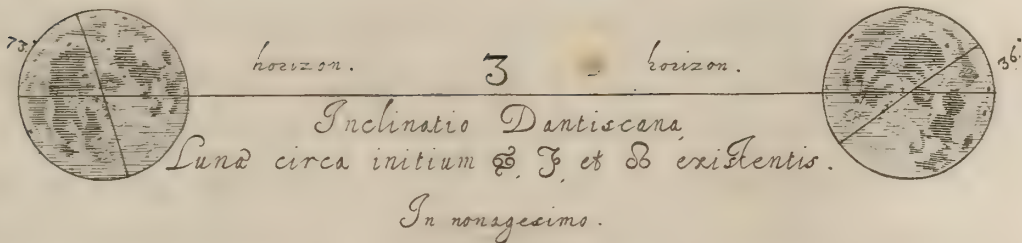 73.
horizon. 3 horizon.
36.
Inclinatio Dantiscana,
Lunæ circa initium et existentis.
In nonagesimo.